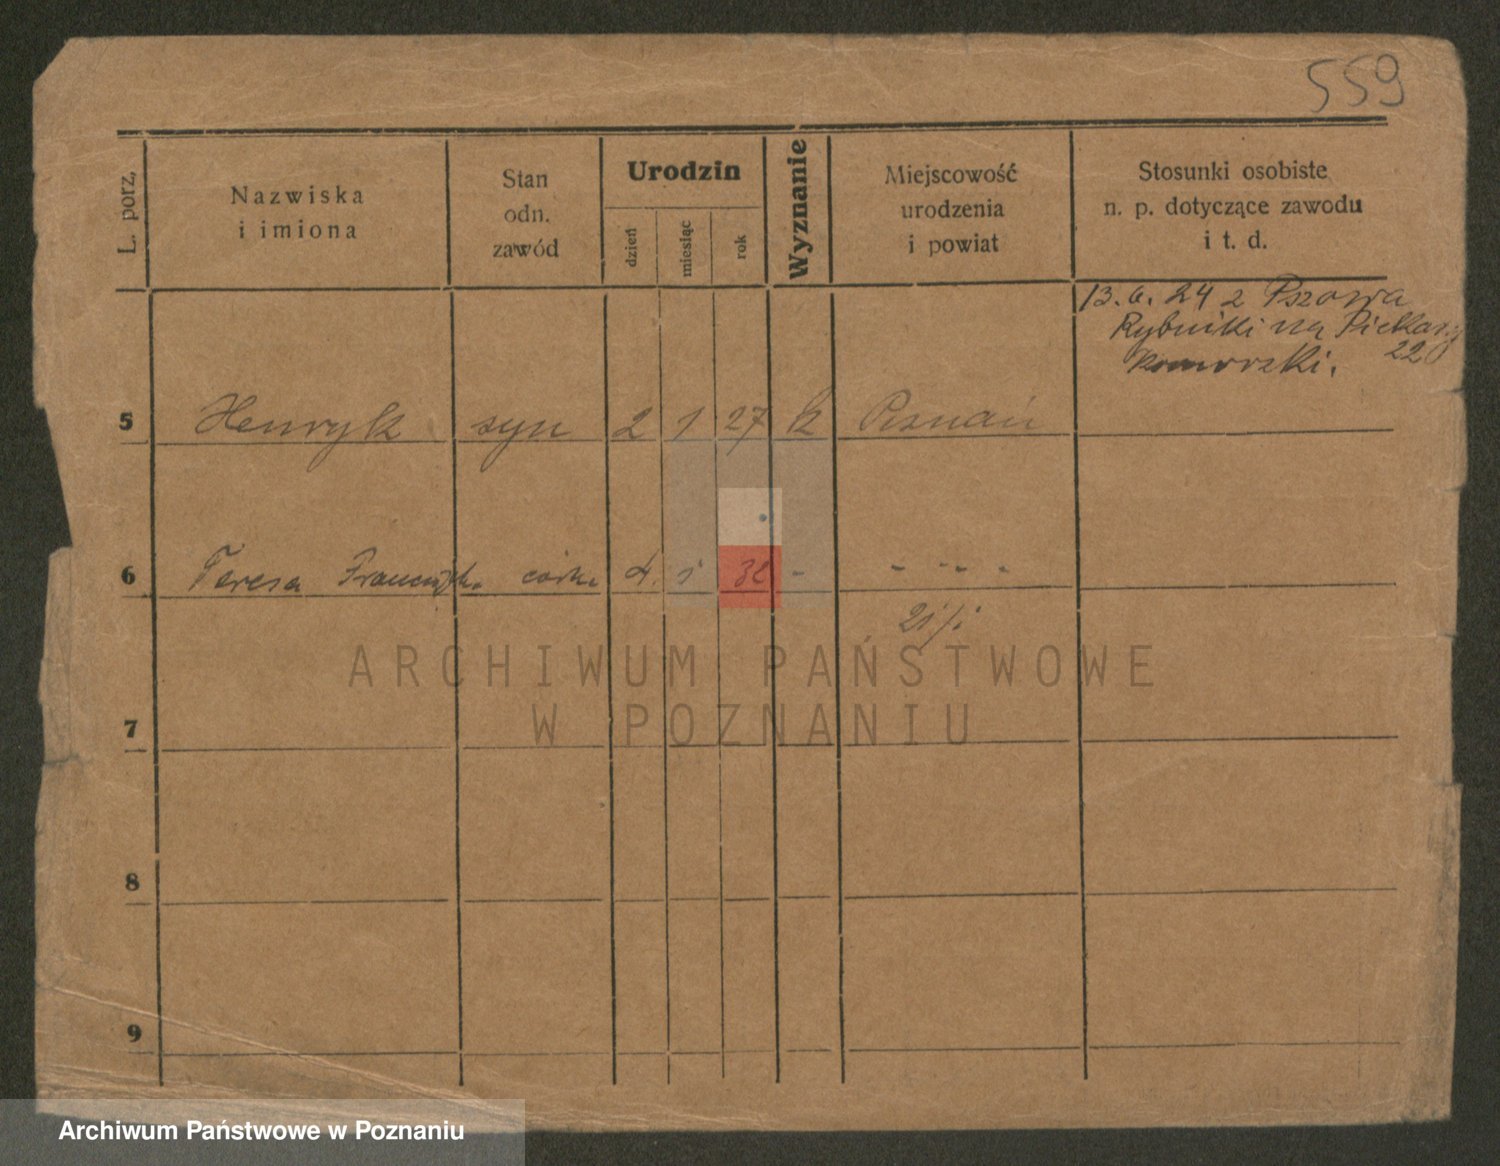 559
L. porz.
Nazwiska
i imiona
Stan
odn.
zawód
Urodzin
dzień
miesiąc
rok
Wyznanie
Miejscowość
urodzenia
i powiat
Stosunki osobiste
n. p. dotyczące zawodu
i t. d.
13.6.24 z Pszowa
Rybniki na Piekary
22
5 Henryk syn 2 1 27 k Poznań
6 Teresa córka 4. - - - -
7
8
9
ARCHIWUM PAŃSTWOWE
W POZNANIU
Archiwum Państwowe w Poznaniu